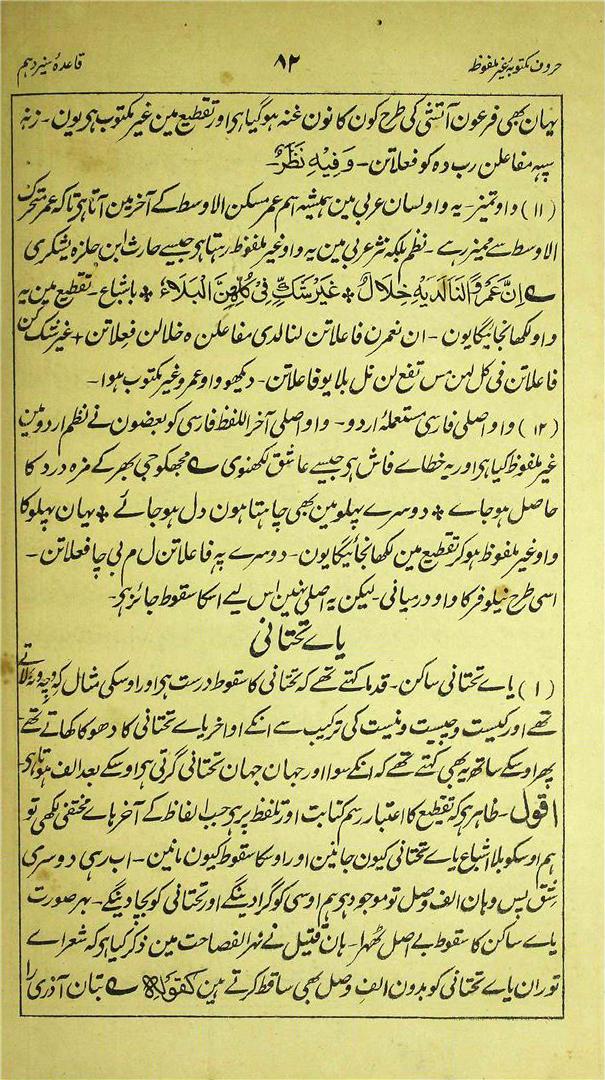 حروف مکتوبۂ غیر ملفوظ ۸۲ قاعدۂ سیزدہم
یہان بھی فرعون آتشی کی طرح کون کا نون غنہ ہو گیا ہی اور تقطیع مین غیر مکتوب ہی یون ۔ زنہ
سپہ مفاعلن رب دہ کو فعلاتن ۔ وَفِیْهِ نَظَرٌ۔
(۱۱) واو تمیز ۔ یہ واو لسان عربی مین ہمیشہ اسم عمر مسکن الاوسط کے آخر مین آتا ہی تاکہ عمر متحرک
الاوسط سے ممیز رہے ۔ نظم بلکہ نثر عربی مین یہ واو غیر ملفوظ رہتا ہی جیسے حارث ابن حلزہ یشکری
ے اِنَّ عَمْرًوا لَنَا لَدَیْهِ خِلَالٌ * غَیْرَ شَكٍّ فِیْ كُلِّهِنَّ الْبَلَاءُ * باشباع ۔ تقطیع مین یہ
واو لکھا نجائیگا یون ۔ ان نعمرن فاعلاتن لنالدی مفاعلن ہ خلالن فعلاتن + غیر شک کن
فاعلاتن فی کل لہن مس تفع لن نل بلایو فاعلاتن ۔ دیکھو واو عمرو غیر مکتوب ہوا ۔
(۱۲) واو اصلی فارسی مستعملۂ اردو ۔ واو اصلی آخر اللفظ فارسی کو بعضون نے نظم اردو مین
غیر ملفوظ کیا ہی اور یہ خطاے فاش ہی جیسے عاشق لکھنوی ے مجھکو جی بھر کے مزہ درد کا
حاصل ہو جاے * دوسرے پہلو مین بھی چاہتا ہون دل ہو جائے * یہان پہلو کا
واو غیر ملفوظ ہو کر تقطیع مین لکھا نجائیگا یون ۔ دوسرے پہ فاعلاتن ل م بی چا فعلاتن ۔
اسی طرح نیلوفر کا واو درمیانی ۔ لیکن یہ اصلی نہین اس لیے اسکا سقوط جائز ہی ۔
یاے تحتانی
(۱) یاے تحتانی ساکن ۔ قدما کہتے تھے کہ تحتانی کا سقوط درست ہی اور اوسکی مثال کہ و چہ و نہ لاتے
تھے اور کیست و چیست و نیست کی ترکیب سے انکے اواخر یاے تحتانی کا دھوکا کھاتے تھے
پھر اوسکے ساتھ یہ بھی کہتے تھے کہ انکے سوا اور جہان جہان تحتانی گرتی ہی اوسکے بعد الف ہوتا ہی ۔
اقول ۔ ظاہر ہی کہ تقطیع کا اعتبار رسم کتابت اور تلفظ پر ہی جب الفاظ کے آخر ہاے مختفی لکھی تو
ہم اوسکو بلا اشباع یاے تحتانی کیون جانین اور اوسکا سقوط کیون مانین ۔ اب رہی دوسری
شق پس وہان الف وصل تو موجود ہی ہم اوسی کو گرا دینگے اور تحتانی کو بچا دینگے ۔ بہر صورت
یاے ساکن کا سقوط بے اصل ٹھہرا ۔ ہان قتیل نے نہر الفصاحت مین ذکر کیا ہی کہ شعراے
توران یاے تحتانی کو بدون الف وصل بھی ساقط کرتے ہین کقولہ ے بتان آذری را